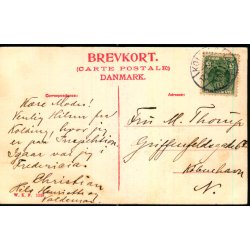 BREVKORT.
(CARTE POSTALE)
DANMARK.
Correspondance:
Adresse:
Kære Moder!
Venlig Hilsen fra
Kolding, hvor jeg
er paa Inspektion
Igaar var jeg i
Fredericia.
Christian
Hils Henriette og
Valdemar.
Fru M. Thorup
Griffenfeldsgade
København
N.
W. K. F.